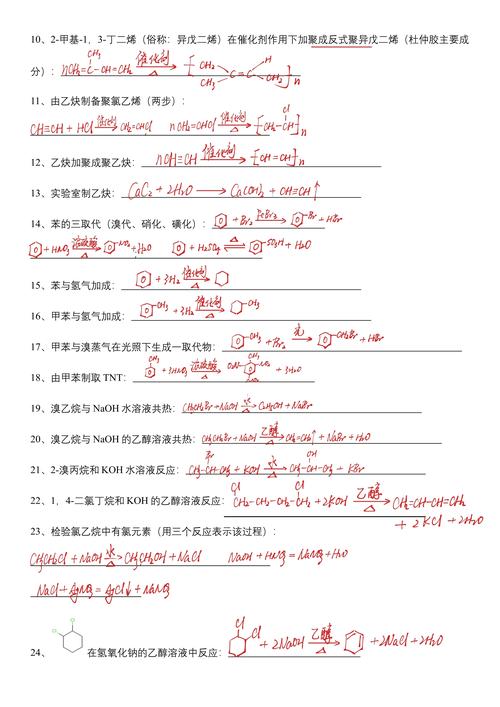 10、2-甲基-1，3-丁二烯（俗称：异戊二烯）在催化剂作用下加聚成反式聚异戊二烯（杜仲胶主要成
分）：nCH₂=C(CH₃)-CH=CH₂ 催化剂 △ [CH₂ CH₃ C=C H CH₂]n
11、由乙炔制备聚氯乙烯（两步）：
CH≡CH + HCl 催化剂 △ CH₂=CHCl nCH₂=CHCl 催化剂 △ [CH₂-CH(Cl)]n
12、乙炔加聚成聚乙炔： nCH≡CH 催化剂 [CH=CH]n
13、实验室制乙炔： CaC₂ + 2H₂O → Ca(OH)₂ + CH≡CH↑
14、苯的三取代（溴代、硝化、磺化）： + Br₂ FeBr₃ -Br + HBr
+ HNO₃ 浓硫酸 △ -NO₂ + H₂O + H₂SO₄ △ -SO₃H + H₂O
15、苯与氢气加成： + 3H₂ 催化剂 △
16、甲苯与氢气加成： -CH₃ + 3H₂ 催化剂 △ -CH₃
17、甲苯与溴蒸气在光照下生成一取代物： -CH₃ + Br₂ 光 -CH₂Br + HBr
18、由甲苯制取 TNT： CH₃ + 3HNO₃ 浓硫酸 △ O₂N CH₃ NO₂ + 3H₂O
19、溴乙烷与 NaOH 水溶液共热： CH₃CH₂Br + NaOH 水 △ C₂H₅OH + NaBr
20、溴乙烷与 NaOH 的乙醇溶液共热： CH₃CH₂Br + NaOH 乙醇 △ CH₂=CH₂↑ + NaBr + H₂O
21、2-溴丙烷和 KOH 水溶液反应： CH₃-CH(Br)-CH₃ + KOH 水 △ CH₃-CH(OH)-CH₃ + KBr
22、1，4-二氯丁烷和 KOH 的乙醇溶液反应： Cl Cl CH₂-CH₂-CH₂-CH₂ + 2KOH 乙醇 △ CH₂=CH-CH=CH₂
+ 2KCl + 2H₂O
23、检验氯乙烷中有氯元素（用三个反应表示该过程）：
CH₃CH₂Cl + NaOH 水 △ CH₃CH₂OH + NaCl NaOH + HNO₃ = NaNO₃ + H₂O
NaCl + AgNO₃ = AgCl↓ + NaNO₃
24、 Cl Cl 在氢氧化钠的乙醇溶液中反应： Cl Cl + 2NaOH 乙醇 △ + 2NaCl + 2H₂O